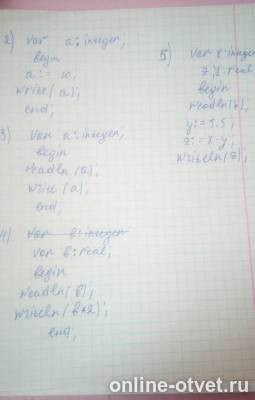 2) var a: integer,
begin
a:= 10;
write(a);
end;
3) var a: integer,
begin
readln(a);
write(a);
end;
4) var b: integer
var b: real,
begin
readln(b);
writeln(b*2);
end;
5) var x: integer
z,y: real
begin
readln(x);
y:= 5.5;
z:= x-y;
writeln(z);
online-otvet.ru